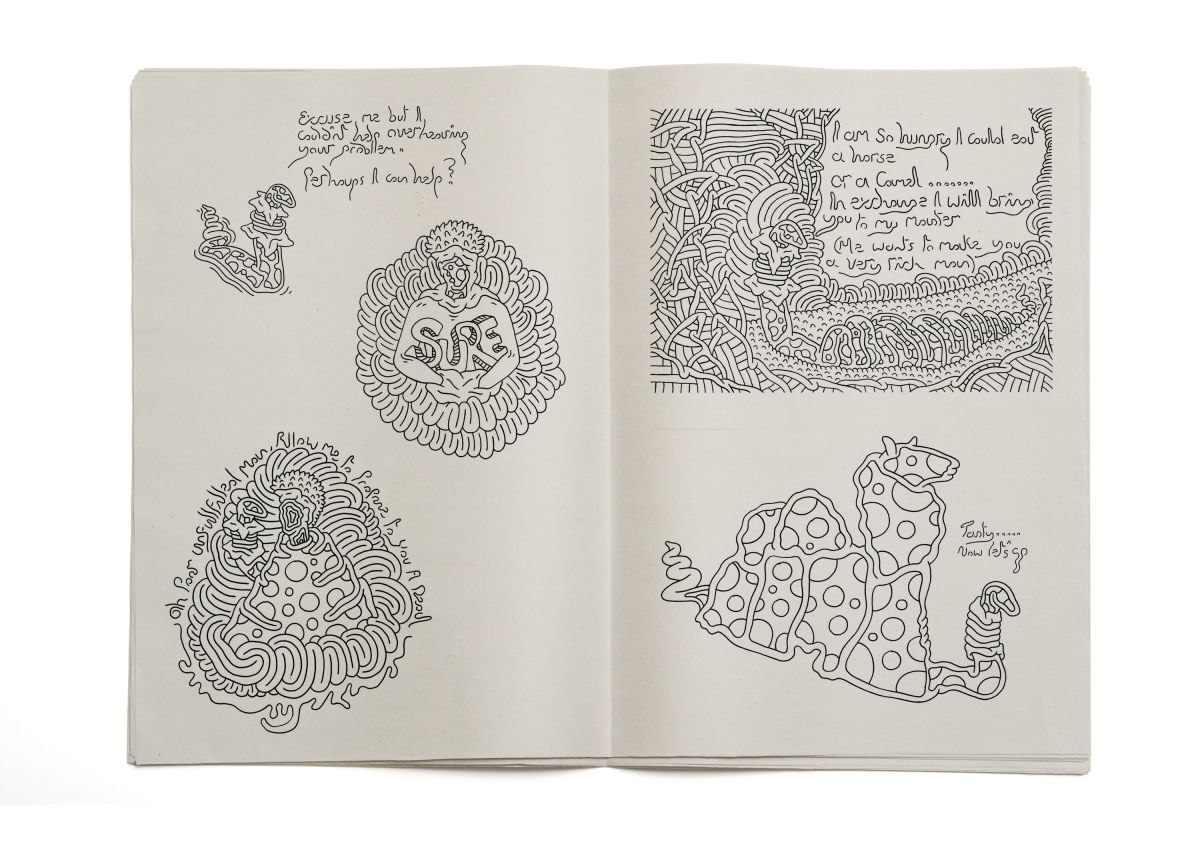 Excuse me but I
couldn't help overhearing
your problem.
Perhaps I can help?
SURE
Oh Poor unfulfilled Man Allow me to propose to you A Deal
I am so hungry I could eat
a horse
or a Camel ........
In exchange I will bring
you to my master
(He wants to make you
a very rich man)
Tasty.....
Now let's go